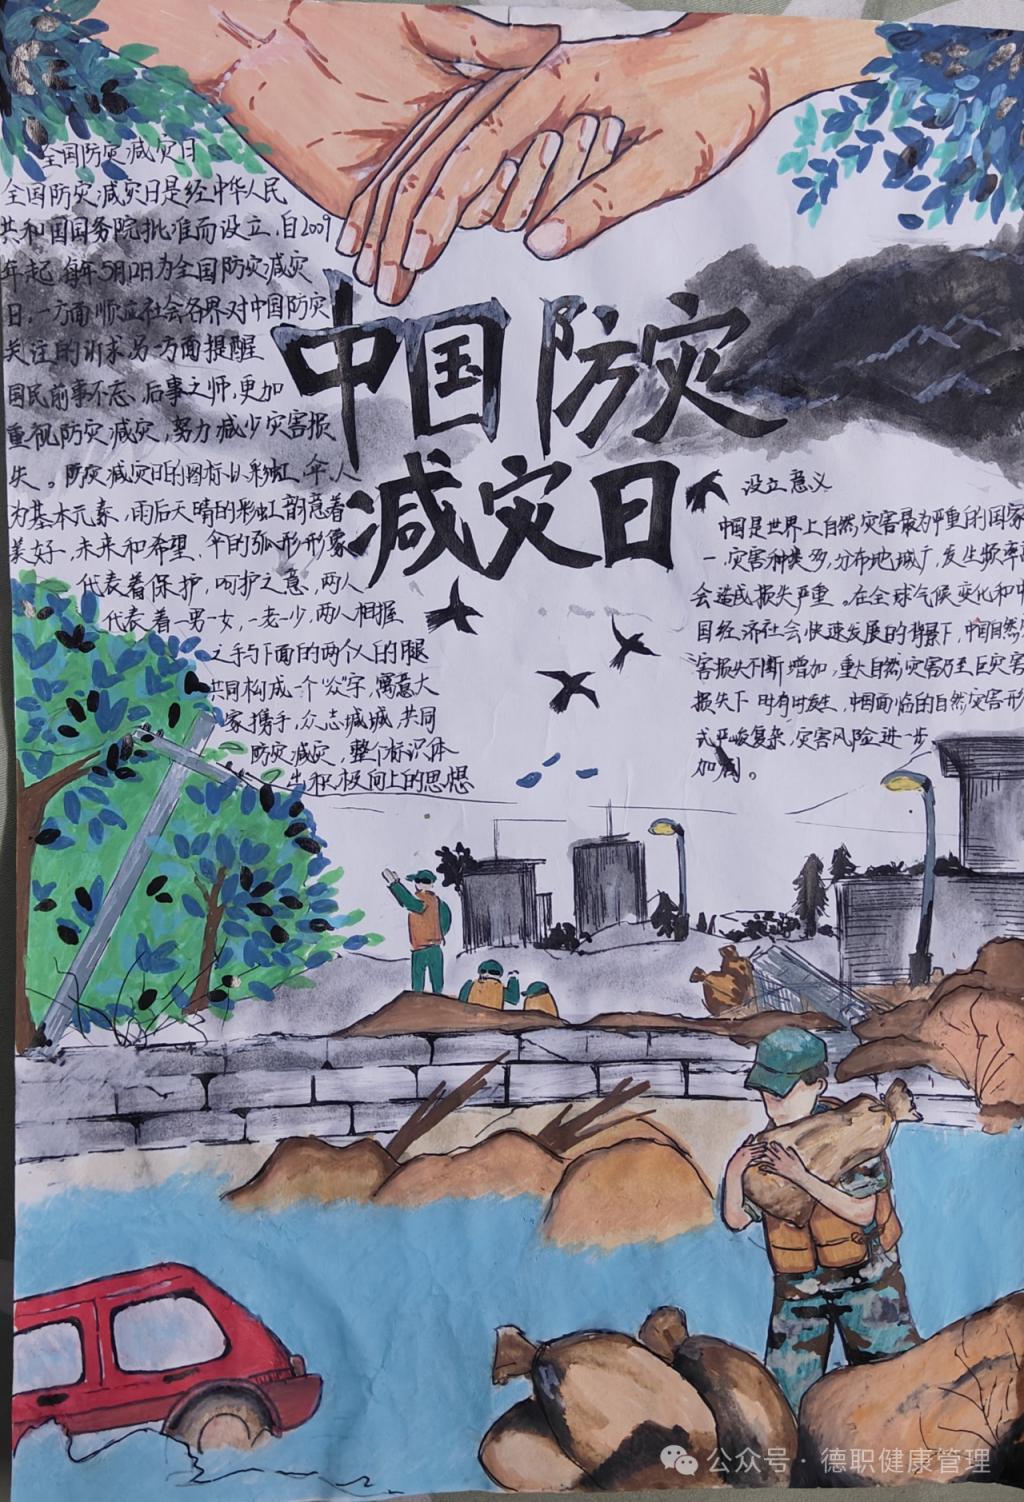 全国防灾减灾日
全国防灾减灾日是经中华人民
共和国国务院批准而设立,自2009
年起 每年5月12日为全国防灾减灾
日,一方面顺应社会各界对中国防灾
关注的诉求另一方面提醒
国民前事不忘、后事之师,更加
重视防灾减灾,努力减少灾害损
失。防灾减灾日的图标以彩虹、伞、人
为基本元素,雨后天晴的彩虹韵意着
美好、未来和希望、伞的弧形形象
代表着保护,呵护之意,两人
代表着一男一女,一老一少,两人相握
之手与下面的两个人的腿
共同构成一个"众"字,寓意大
家携手,众志成城,共同
防灾减灾,整个标识体
出积极向上的思想
中国防灾
减灾日
设立意义
中国是世界上自然灾害最为严重的国家
一,灾害种类多,分布地域广,发生频率
会造成损失严重。在全球气候变化和中
国经济社会快速发展的背景下,中国自然
害损失不断增加,重大自然灾害乃至巨灾害
损失下 时有时发生,中国面临的自然灾害形
式严峻复杂,灾害风险进一步
加剧。
公众号·德职健康管理